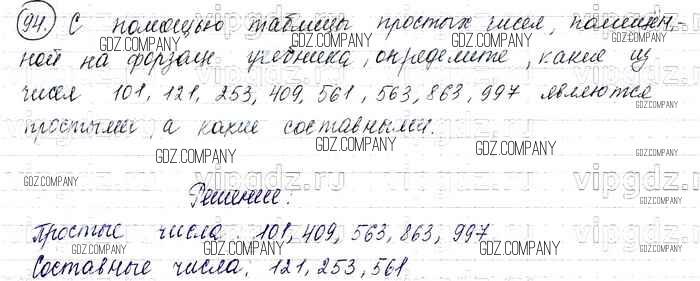 94. С помощью таблицы простых чисел, помещен-
ной на форзаце учебника, определите, какие из
чисел 101, 121, 253, 409, 561, 563, 863, 997 являются
простыми, а какие составными.
Решение:
Простые числа: 101, 409, 563, 863, 997
Составные числа: 121, 253, 561